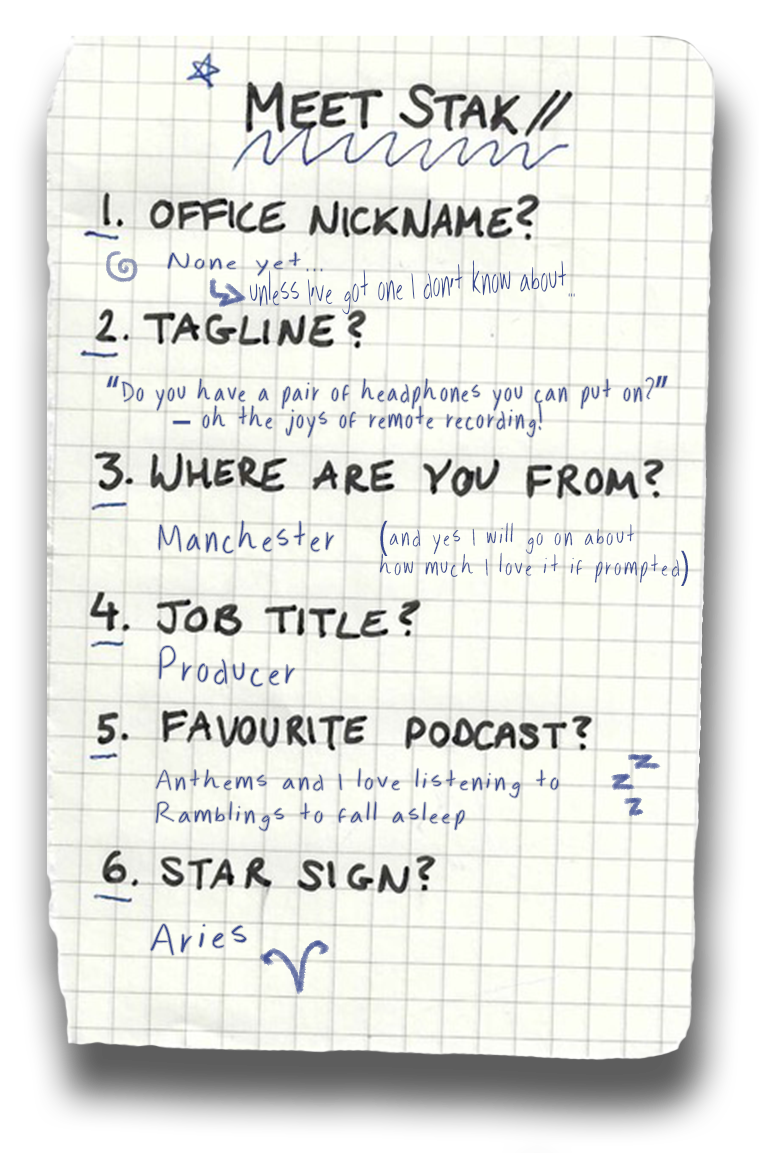 MEET STAK//
1. OFFICE NICKNAME?
None yet...
unless I've got one I don't know about...
2. TAGLINE?
"Do you have a pair of headphones you can put on?"
– oh the joys of remote recording!
3. WHERE ARE YOU FROM?
Manchester (and yes I will go on about
how much I love it if prompted)
4. JOB TITLE?
Producer
5. FAVOURITE PODCAST?
Anthems and I love listening to
Ramblings to fall asleep
z
z
z
6. STAR SIGN?
Aries